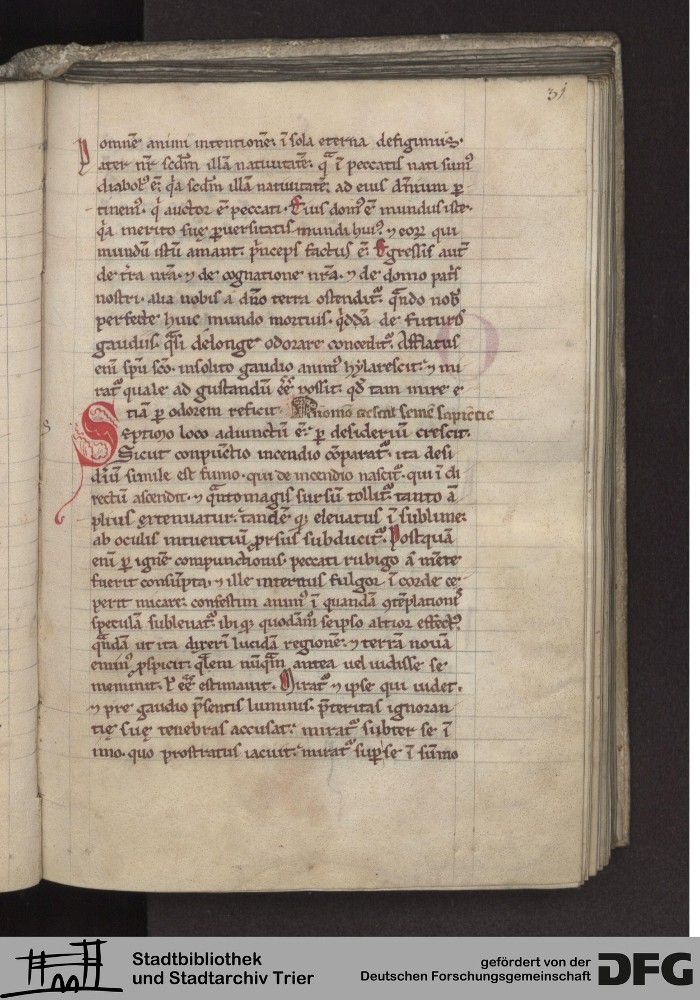 31
omnē animi intentionē. ī sola eterna defigimus.
Pater nr̄ scdm̄ illā natiuitatē. qua ī peccatis nati sum᷒
diabol᷒ ē. q̇a scdm̄ illā natiuitatē. ad eius dn̄ium ꝑ
tinem᷒. q̇ auctor ē peccati. Eius dom᷒ ē mundus iste.
q̇a merito suę ꝑuersitatis mundi hui᷒. ⁊ eoꝝ qui
mundū istū amant. p̄nceps factus ē. Egressis aut̄
de tr̄a nr̄a. ⁊ de cognatione nr̄a. ⁊ de domo pat̄s
nostri. alia nobis a dn̄o terra ostendit᷑. qn̄do nob̄
perfecte huic mundo mortuis. q̇ddā de futuro
gaudiis. q̄si delonge odorare concedit᷑. Afflatus
enī spū sc̄o. insolito gaudio anim᷒ hylarescit. ⁊ mi
rat᷑ quale ad gustandū ēē possit. qd̄ tam mire e
tiā ꝑ odorem reficit. Quomo crescat semē sapientię
Septimo loco adiunctū ē. ꝑ desideriū crescit.
Sicut conpunctio incendio cōparat᷑. ita desi
diū simile est fumo. qui de incendio nascit᷑. qui ī di
rectū ascendit. ⁊ q̄nto magis sursū tollit᷑. tanto ā
plius extenuatur. tandē q; eleuatus ī sublime.
ab oculis intuentiū ꝓrsus subducit᷑. Postquā
enī ꝑ ignē compunctionis. peccati rubigo a m̄te
fuerit consūpta. ⁊ ille internus fulgor ī corde ce
perit micare. confestim anim᷒ ī quandā ꝯtēplationis
speculā subleuat᷑. ibi q; quodām seipso altior effect᷒.
q̄ndā ut ita dixerī lucidā regionē. ⁊ terrā nouā
emin᷒ ꝓspicit. q̄lem nūq̄m antea uel uidisse se
meminit. ł ēē estimauit. Mirat᷑ ⁊ ipse qui uidet.
⁊ pre gaudio p̄sentis luminis. p̄teritas ignoran
tię suę tenebras accusat. mirat᷑ subter se ī
imo. quo prostratus iacuit. mirat᷑ suꝑ se ī sūmo
Stadtbibliothek
und Stadtarchiv Trier
gefördert von der
Deutschen Forschungsgemeinschaft
DFG